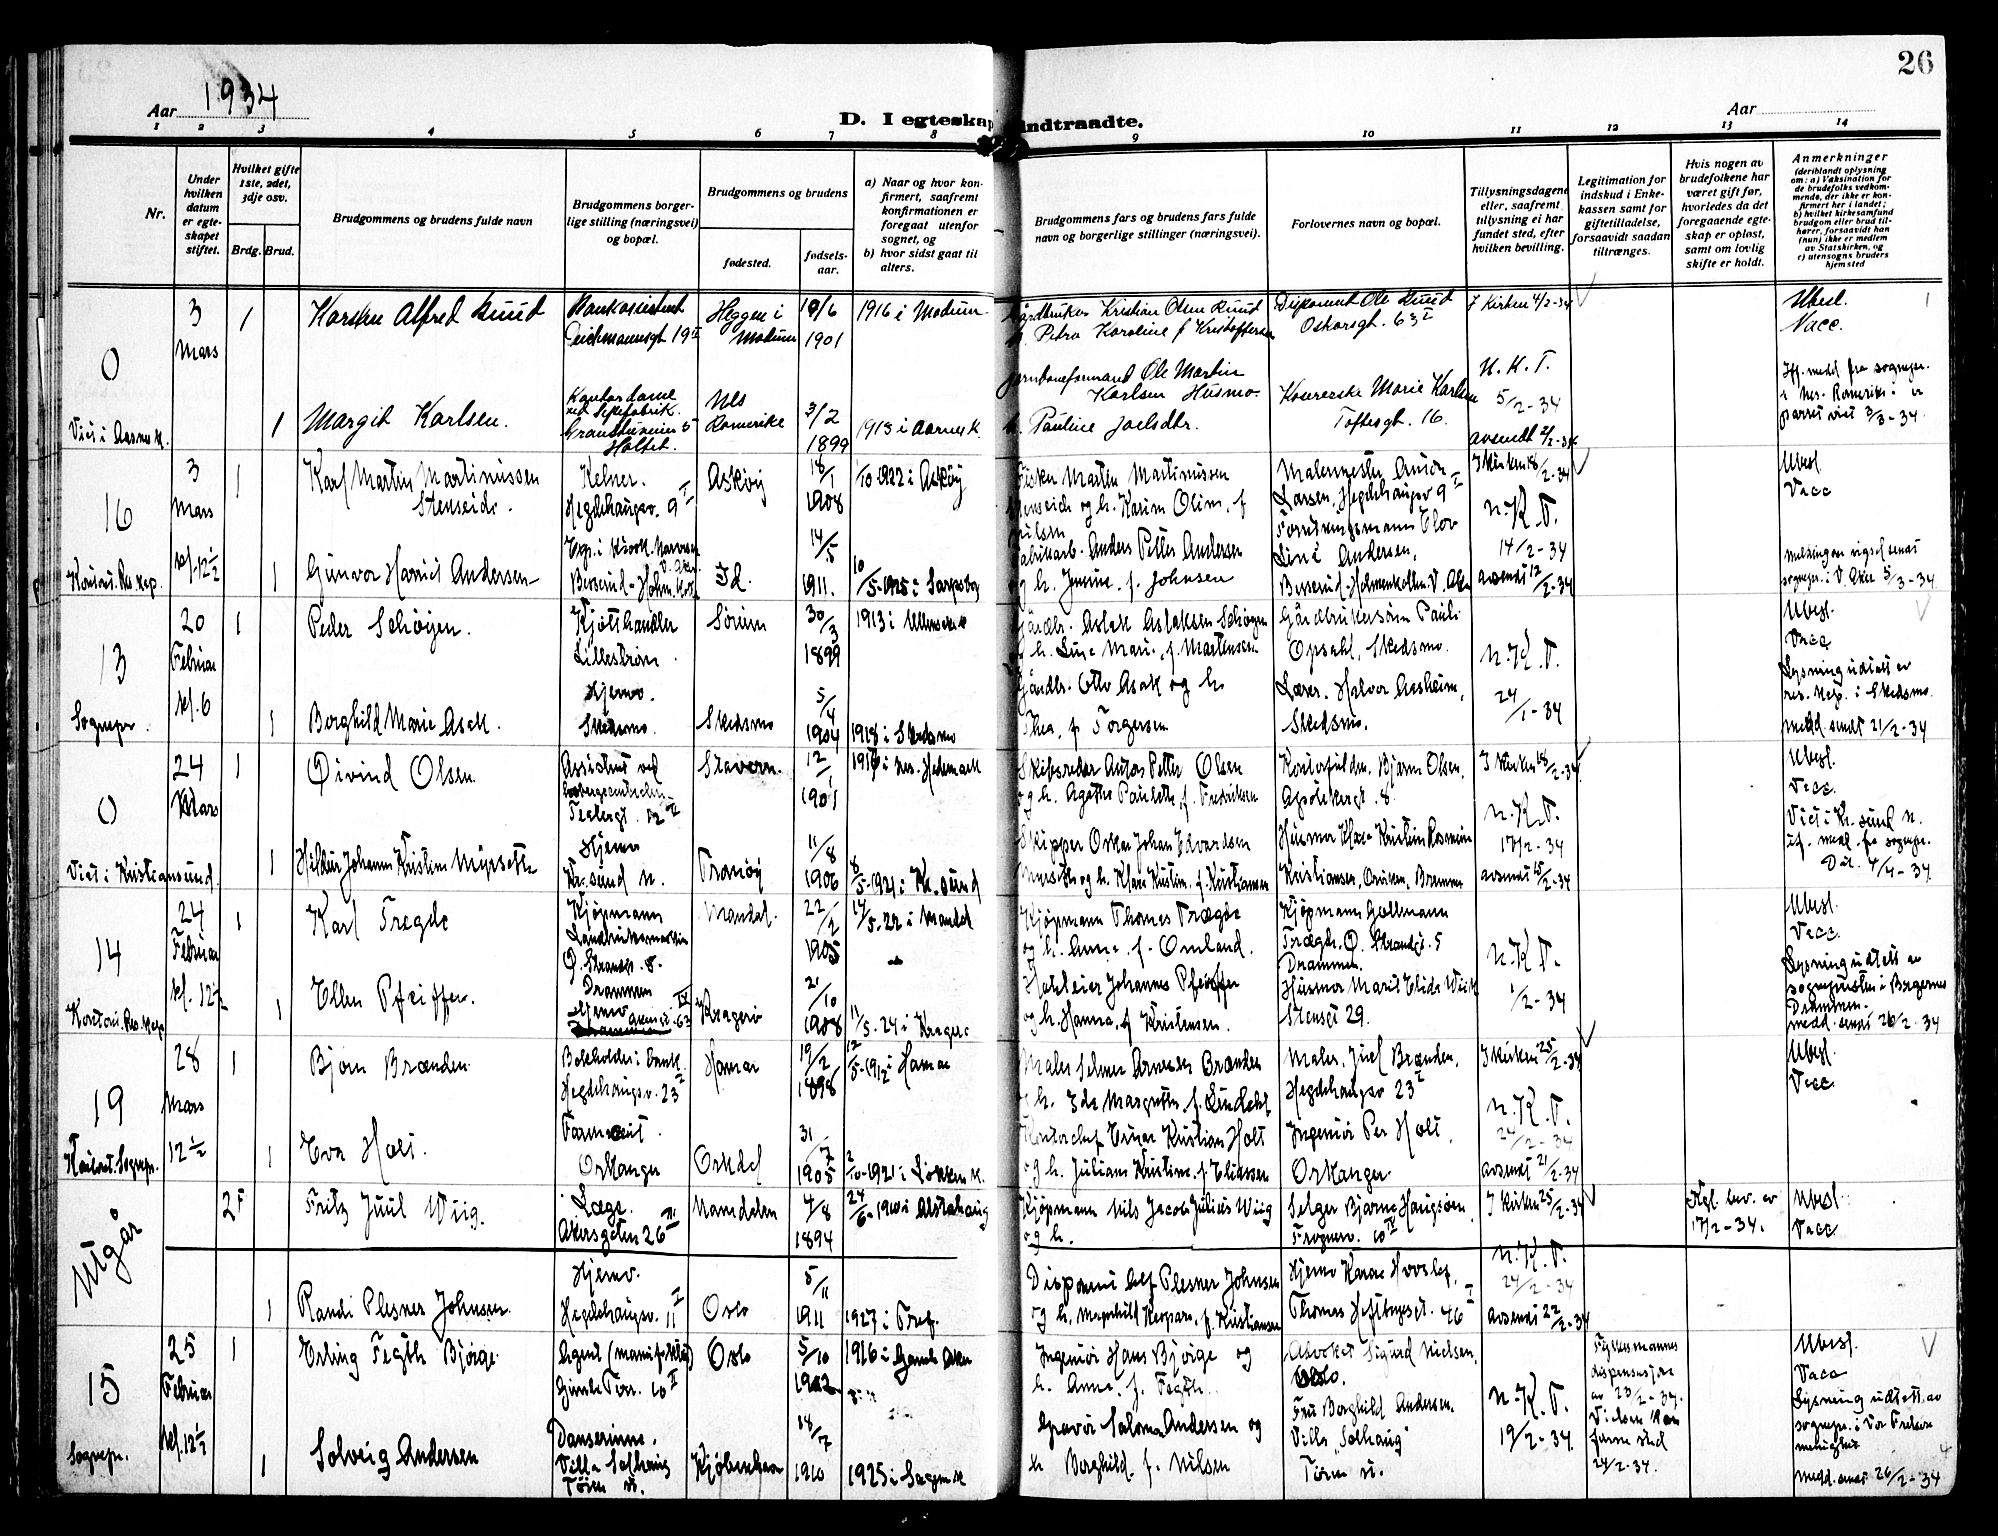 26
Aar 1934
Aar
D. I egteskap indtraadte.
1 2 3 4 5 6 7 8 9 10 11 12 13 14
Nr.
Under hvilken datum er egteskapet stiftet.
Hvilket gifte 1ste, 2det, 3dje osv.
Brdg. Brud.
Brudgommens og brudens fulde navn
Brudgommens borgerlige stilling (næringsvei) og bopæl.
Brudgommens og brudens
fødested.
fødselsaar.
a) Naar og hvor konfirmert, saafremt konfirmationen er foregaat utenfor sognet, og
b) hvor sidst gaat til alters.
Brudgommens fars og brudens fars fulde navn og borgerlige stillinger (næringsvei).
Forlovernes navn og bopæl.
Tillysningsdagene eller, saafremt tillysning ei har fundet sted, efter hvilken bevilling.
Legitimation for indskud i Enkekassen samt for giftetilladelse, forsaavidt saadan tiltrænges.
Hvis nogen av brudefolkene har været gift før, hvorledes da det foregaaende egteskap er opløst, samt om lovlig skifte er holdt.
Anmerkninger (deriblandt oplysning om: a) Vaksination for de brudefolks vedkommende, der ikke er konfirmert her i landet; b) hvilket kirkesamfund brudgom eller brud tilhører, forsaavidt han (hun) ikke er medlem av Statskirken, og c) utensogns bruders hjemsted
0
3 Mars
1
Karsten Alfred Ruud
Bankassistent
Deichmannsgt 19 II
Heggen i Modum
19/6 1901
1916 i Modum
Gårdbruker Kristian Olsen Ruud
h. Petra Karoline f Kristoffersen
Disponent Ole Ruud
Oskarsgt. 63 I
I Kirken 4/2-34
Ubesl.
Vacc.
Viet i Aarnes k.
1
Margit Karlsen.
Kontordame
Nes Romerike
3/2 1899
1913 i Aarnes k.
Jernbaneformand Ole Martin
Karlsen Husmo.
h. Pauline Joelsdtr.
Marie Karlsen
Toftesgt. 16.
N. K. T.
5/2-34
avsendt 21/2-34
Iflg. medd fra sogneprs.
i Nes. Romerike er
parret viet 3/3-34.
16
3 Mars
kl. 12 1/2
1
Karl Martin Martinussen
Stenseide.
Kelner.
Hegdehaugsv. 9 I
Askøy
18/1 1908
/10-1922 i Askøy
Fisker Martin Martinussen
Stenseide og h. Karine Oline f
Nilsen
Malermester Anton
Larsen, Hegdehaugsv 9 I
I Kirken 18/2-34
N.K.T.
14/2-34
avsendt 12/2-34
Ubesl
Vacc
Kontort. Res. Kap.
1
Gunvor Harriet Andersen
Besserud-Holm.koll.
Id.
14/5 1911.
10/5-1925 i Sarpsborg
Fabrikarb. Anders Petter Andersen
og h. Jensine f. Johnsen
Andersen,
Besserud-Holmenkollen. V. Aker
Melding om vigsel sendt
sognepr. i V. Aker 5/3-34
13
20 Februar
kl. 6
1
Peder Schøyen.
Kjøtthandler
Lillestrøm
Sørum
30/3 1899
1913 i Ullensaker
Gårdbr. Aslak Aslaksen Schøyen
og h. Line Marie f. Martinsen
Gårdbrukersøn Paul
Opsahl, Skedsmo.
N.K.T.
24/1-34
Ubesl.
Vacc
Lysning utdelt av
res. Kap. i Skedsmo
medd sendt 21/2-34
Sognepr.
1
Borghild Marie Asak.
Hjemv.
Skedsmo.
Skedsmo
5/4 1904
1918 i Skedsmo
Gårdbr. Otto Asak og h.
Thea, f Torgersen
Lærer. Halvor Aasheim,
Skedsmo.
0
24 Mars
1
Øivind Olsen
Assistent ved
Stavern.
12/1 1901
1916 i Nes. Hedemark
Skibsreder Anton Petter Olsen
og h. Agathe Paulette f. Fredriksen
Kontorfuldm. Bjarne Olsen,
Apotekergt. 8.
I Kirken 18/2-34
N.K.T.
17/2-34
avsendt 15/2-34
Ubesl
Vacc.
Viet i Kr.sund N.
if. medd. fra sognepr.
Dat. 4/4-34.
Viet i Kristiansund.
1
Hildur Johanne Kristine Myrseth
Hjemv
Kr.sund N.
Tranøy
11/8 1906
8/5-1921 i Kr.sund
Skipper Oskar Johan Edvardsen
Myrseth og h. Klara Kristine f. Kristiansen
Husmor Klara Kristine Rasmussen
14
24 Februar
kl. 12 1/2
1
Karl Tregde
Kjøpmann
Ø. Strandgt. 8.
Drammen
Mandal.
22/2 1905
14/5-22 i Mandal
Kjøpmann Thomas Trægde
og h. Anna f. Omland.
Kjøpmann
Trægde. Ø. Strandgt. 5
Drammen.
N.K.T.
1/2-34
Ubesl.
Vacc.
Lysning utdelt av
sogneprsten i Bragernes
Drammen.
medd. sendt 26/2-34
Kontort. Res. Kap
1
Ellen Pfeiffer.
Hjemv
Kragerø
21/10 1908
11/5-24 i Kragerø
Johannes Pfeiffer
og h. Hanna, f Kristensen.
Husmor Marit Elida Wiik
Stensgt 29.
19
28 Mars
12 1/2
1
Bjørn Brænden
Bokholder i bank.
Hegdehaugsv. 23 I
Hamar
19/2 1898
12/5-1912 i Hamar
Maler Selmer Arnesen Brænden
og h. Ida Margrethe f. Lindahl
Maler. Josef Brænden,
Hegdehaugsv 23 I
I Kirken 25/2-34
N.K.T.
24/2-34
avsendt 21/2-34
Ubesl
Vacc
Kontort. Sognepr.
1
Eva Holt.
Orkanger
Orkdal
31/7 1905
2/10-1921 i Løkken k.
Kontorchef Einar Kristian Holt
og h. Juliane Kristine f Eliassen
Ingeniør Per Holt,
Orkanger
Utgår
2F
Fritz Juul Wiig.
Læge.
Akersgaten 26 III
Namdalen
4/8 1894
24/6-1910 i Alstahaug
Kjøpmann Nils Jacob Julius Wiig
og h.
Selger Bjarne Haugsøen
Frognerv. 10 IV
I Kirken 25/2-34
N.K.T.
24/2-34
avsendt 22/2-34
Kgl. bev. av
17/2-34.
Ubesl.
Vacc
1
Randi Plesner Johnsen.
Hjemv.
Hegdehaugsv. 11 I
Oslo
5/11 1911
1927 i Tref.
Disponent Leif Plesner Johnsen
og h. Magnhild f. Kristiansen
Thomas Heftyesgt. 46 I
15
25 Februar
kl. 12 1/2
1
Erling Fegth Bjørge.
Agent
Gimle Terr. 10 II
Oslo
5/10 1902
1916 i Gamle Aker
Ingeniør Hans Bjørge og
h. Anna f. Fegth.
Advokat Sigurd Nielsen,
Oslo.
N.K.T.
19/2-34.
Fylkesmannens
dispensasjon
av 23/2-34.
Vielsen kan
finne sted
24/2-34.
Ubesl.
Vacc
Lysning utdelt av
sognepr. i Vor Frelsers
menighet
medd. sendt 26/2-34
Sognepr.
1
Solveig Andersen
Danserinne.
Villa Solhaug
Kjøbenhavn
18/7 1910
1925 i Sagene k
Gravør Salomon Andersen og
h Borghild f. Nilsen
Fru Borghild Andersen.
Villa „Solhaug"